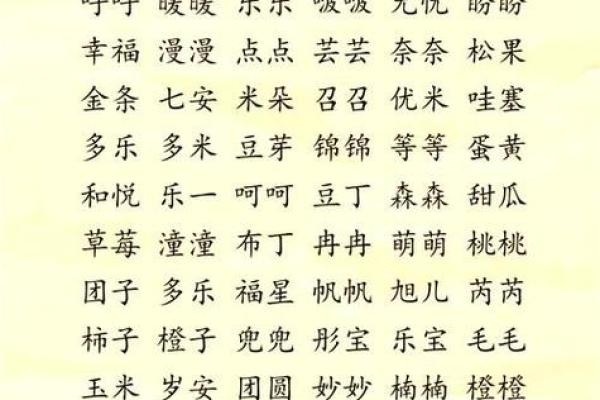 呼呼 暖暖 乐乐 啵啵 尤忧 盼盼
幸福 漫漫 点点 芸芸 奈奈 松果
金条 七安 米朵 召召 优米 哇塞
多乐 多米 豆芽 锦锦 等等 蛋黄
和悦 乐一 呵呵 豆丁 森森 甜瓜
草莓 潼潼 布丁 冉冉 萌萌 桃桃
团子 多乐 福星 帆帆 旭儿 芮芮
柿子 橙子 兜兜 彤宝 乐宝 毛毛
玉米 岁安 团圆 妙妙 楠楠 橙橙